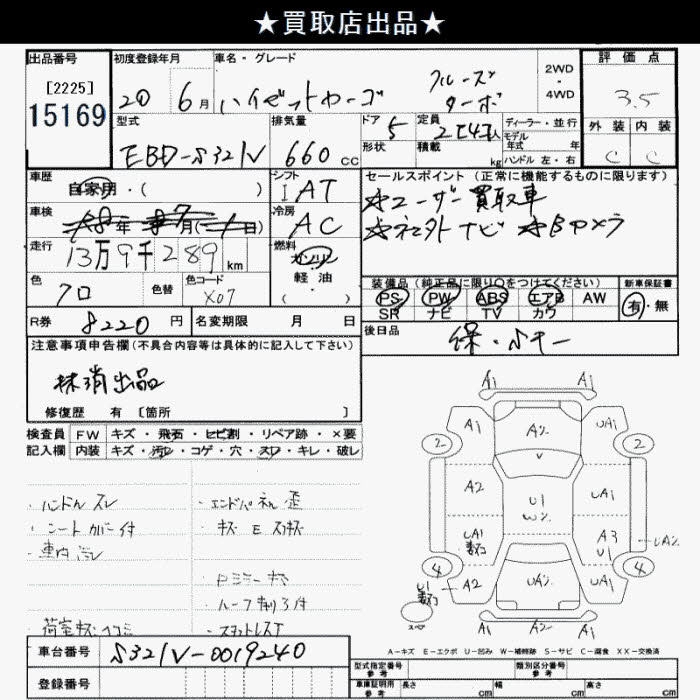 ★買取店出品★
出品番号
[2225]
15169
初度登録年月
20 6月
車名・グレード
ハイゼットカーゴ
クルーズ
ターボ
2WD
・
4WD
評価点
3.5
外装 内装
C C
型式
EBD-S321V
排気量
660 CC
ドア 5
形状
定員 2(4)人
積載 kg
ディーラー・並行
モデル
年式 年
ハンドル 左・右
車歴
自家用・( )
シフト
I AT
車検
年 月( 日)
冷房
AC
走行
13万9千289 km
燃料
ガソリン
軽油
・
( )
色
クロ
色替
色コード
X07
R券 8220 円
名変期限 月 日
セールスポイント (正常に機能するものに限ります)
☆ユーザー買取車
☆社外ナビ ☆Bカメラ
装備品 (純正品に限り○をつけてください)
PS PW ABS エアB AW
SR ナビ TV カワ
新車保証書
有・無
後日品
保・Sキー
注意事項申告欄(不具合内容等は具体的に記入して下さい)
抹消出品
修復歴 有 [箇所 ]
検査員 FW キズ・飛石・ヒビ割・リペア跡・×要
記入欄 内装 キズ・汚レ・コゲ・穴・スレ・キレ・破レ
・ハンドルスレ
・シートカバー付
・車内汚レ
・荷室キズ・ヘコミ
・エンドパネル歪
・キズ E スリキズ
・Pミラーキズ
・ルーフ
・スタットレスT
A1 A1
A1 A2 UA1
2 2
A2 U1 UA1
W2
UA1 A3
U1
UA2
4 4
U1
A2 UA2 UA1
スペア
A1 A1
A-キズ E-エクボ U-凹み W-補修跡 S-サビ C-腐食 XX-交換済
車台番号 S321V-0019240
登録番号
型式指定番号
参考
類別区分番号
参考
車庫証明用
参考
長さ cm 幅 cm 高さ cm